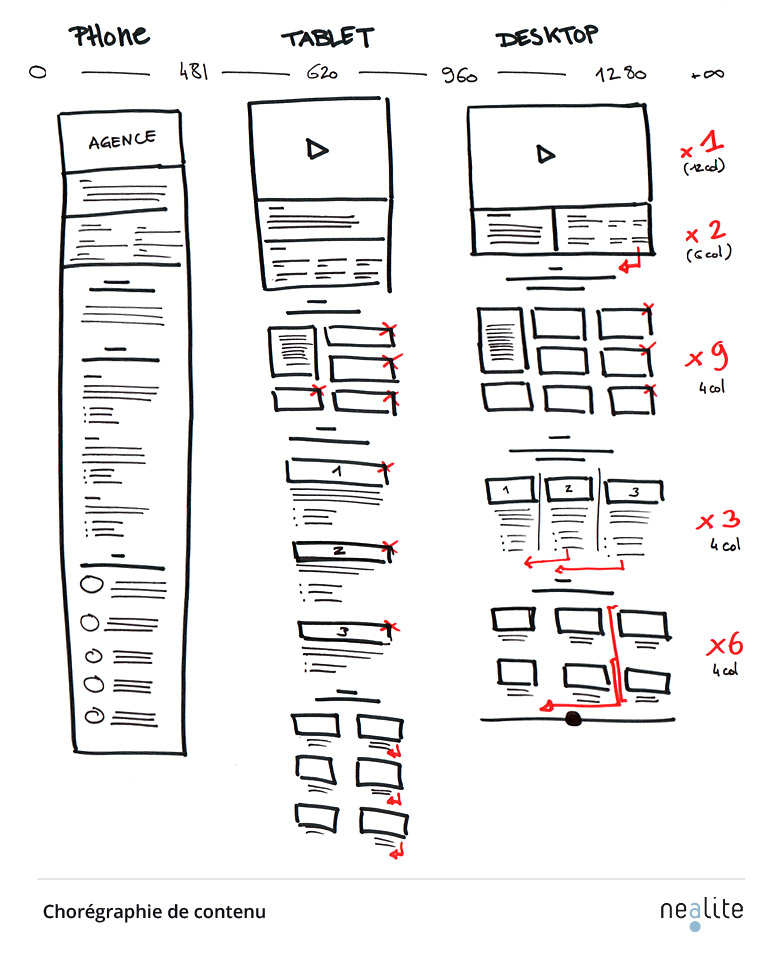 PHONE TABLET DESKTOP
0 481 620 960 1280 +∞
AGENCE
x 1
(12 col)
x 2
(6 col)
x 9
4 col
1
2
3
1 2 3
x 3
4 col
x6
4 col
Chorégraphie de contenu
nealite